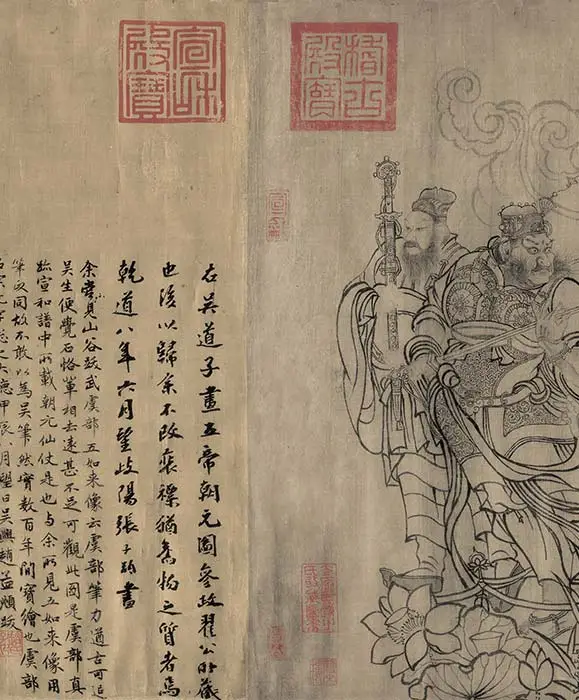 緝熙殿寶
宣和殿寶
右吳道子畫五帝朝元圖參政翟公所藏
也後以歸余不改裝褾猶舊物之質者焉
乾道八年六月望岐陽張子書
余嘗見山谷跋武虞部五如來像云虞部筆力遒古可追
吳生便覺石恪輩相去遠甚不足可觀此圖是虞部真
跡宣和譜中所載朝元仙仗是也与余所見五如來像用
筆政同故不敢以為吳筆然實數百年間寶繪也虞部
名宗元字總之大德甲辰八月望日吳興趙孟頫跋